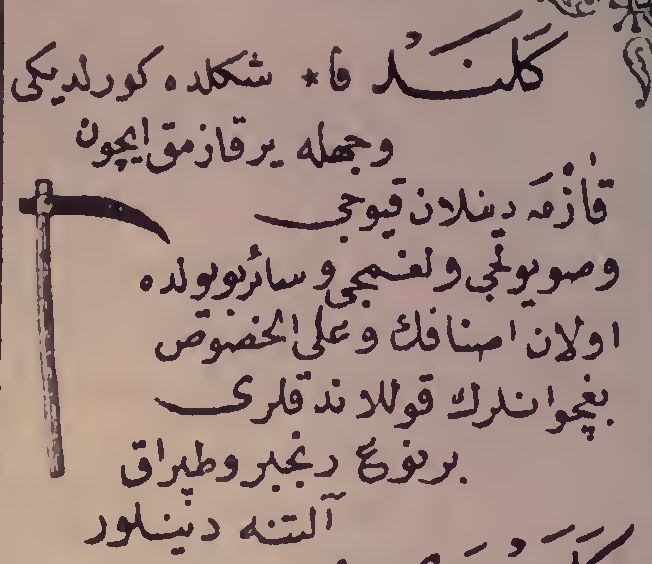 كَلَنْد فا * شكلده كورلديكى
وجهله ير قازمق ايچون
قَازْمَه دينلان قيوجى
وصويولجى ولغمجى وسائر بو يولده
اولان اصنافك وعلى الخصوص
بغچوانلرك قوللاندقلرى
بر نوع رنجبر وطپراق
آلتنه دينلور